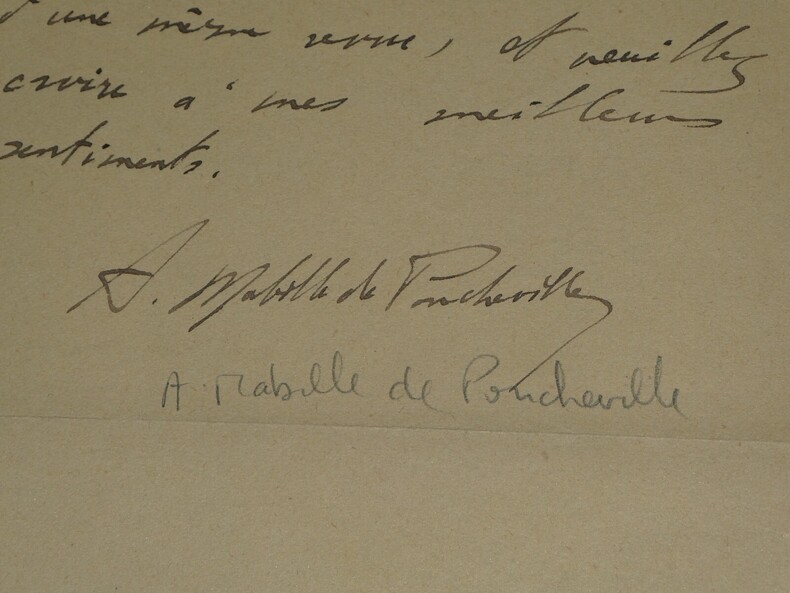 d'une même revue, et veuillez
croire à mes meilleurs
sentiments.
A. Mabille de Poncheville
A Mabille de Poncheville